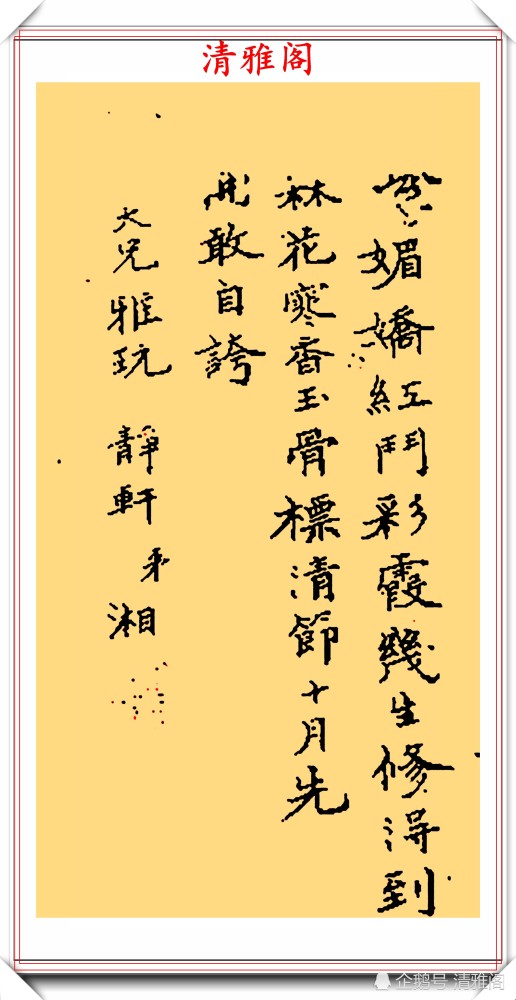 清雅阁
媚嬌紅鬥彩霞幾生修得到
林花寒香玉骨標清節十月先
開敢自誇
大兄雅玩 靜軒 弟 湘
企鹅号 清雅阁